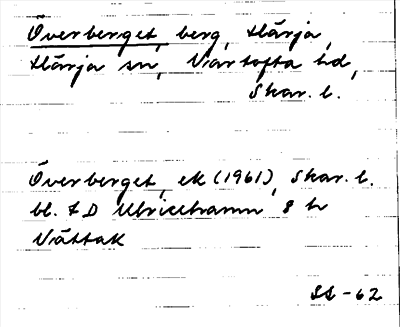 Överberget, berg, Härja,
Härja sn, Vartofta hd,
Skar. l.
Överberget, ek (1961), Skar. l.
bl. & D Ulricehamn 8 h
Vättak
SL -62